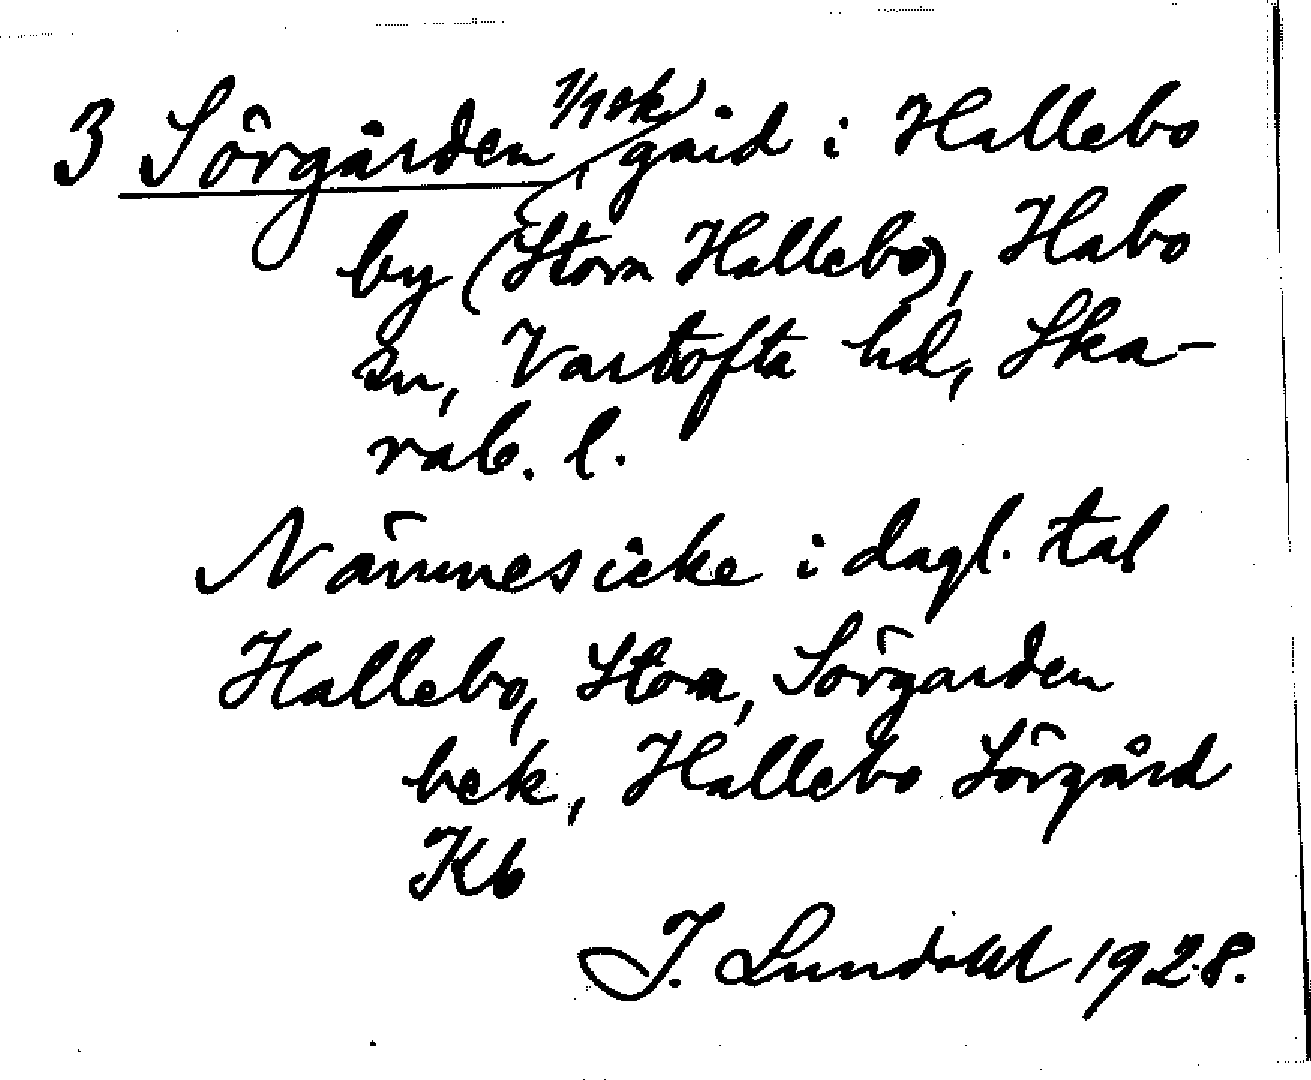 3 Sörgården, 1/1 sk, gård i Hallebo
by (Stora Hallebo), Habo
sn, Vartofta hd, Ska-
rab. l.
Nämnes icke i dagl. tal
Hallebo, Stora, Sörgården
bek, Hallebo Sörgård
Kb
I. Lundahl 1928.